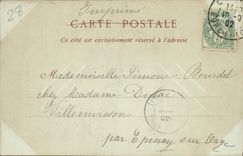 28
Imprimé
CARTE POSTALE
Ce côté est exclusivement réservé à l'adresse
02
Mademoiselle Simone Bourdel
chez Madame
Villemoisson
par Epinay sur Orge